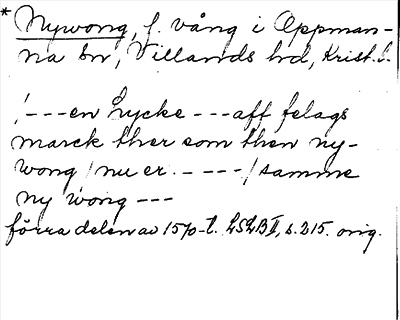 * Nywong, f. vång i Oppman-
na sn, Villands hd, Krist. l.
/---en lycke --- aff felags
marck ther som then ny-
wong / nu er. ---- / samme
ny wong ---
förra delen av 1570-t. LSLB II, s. 215. orig.